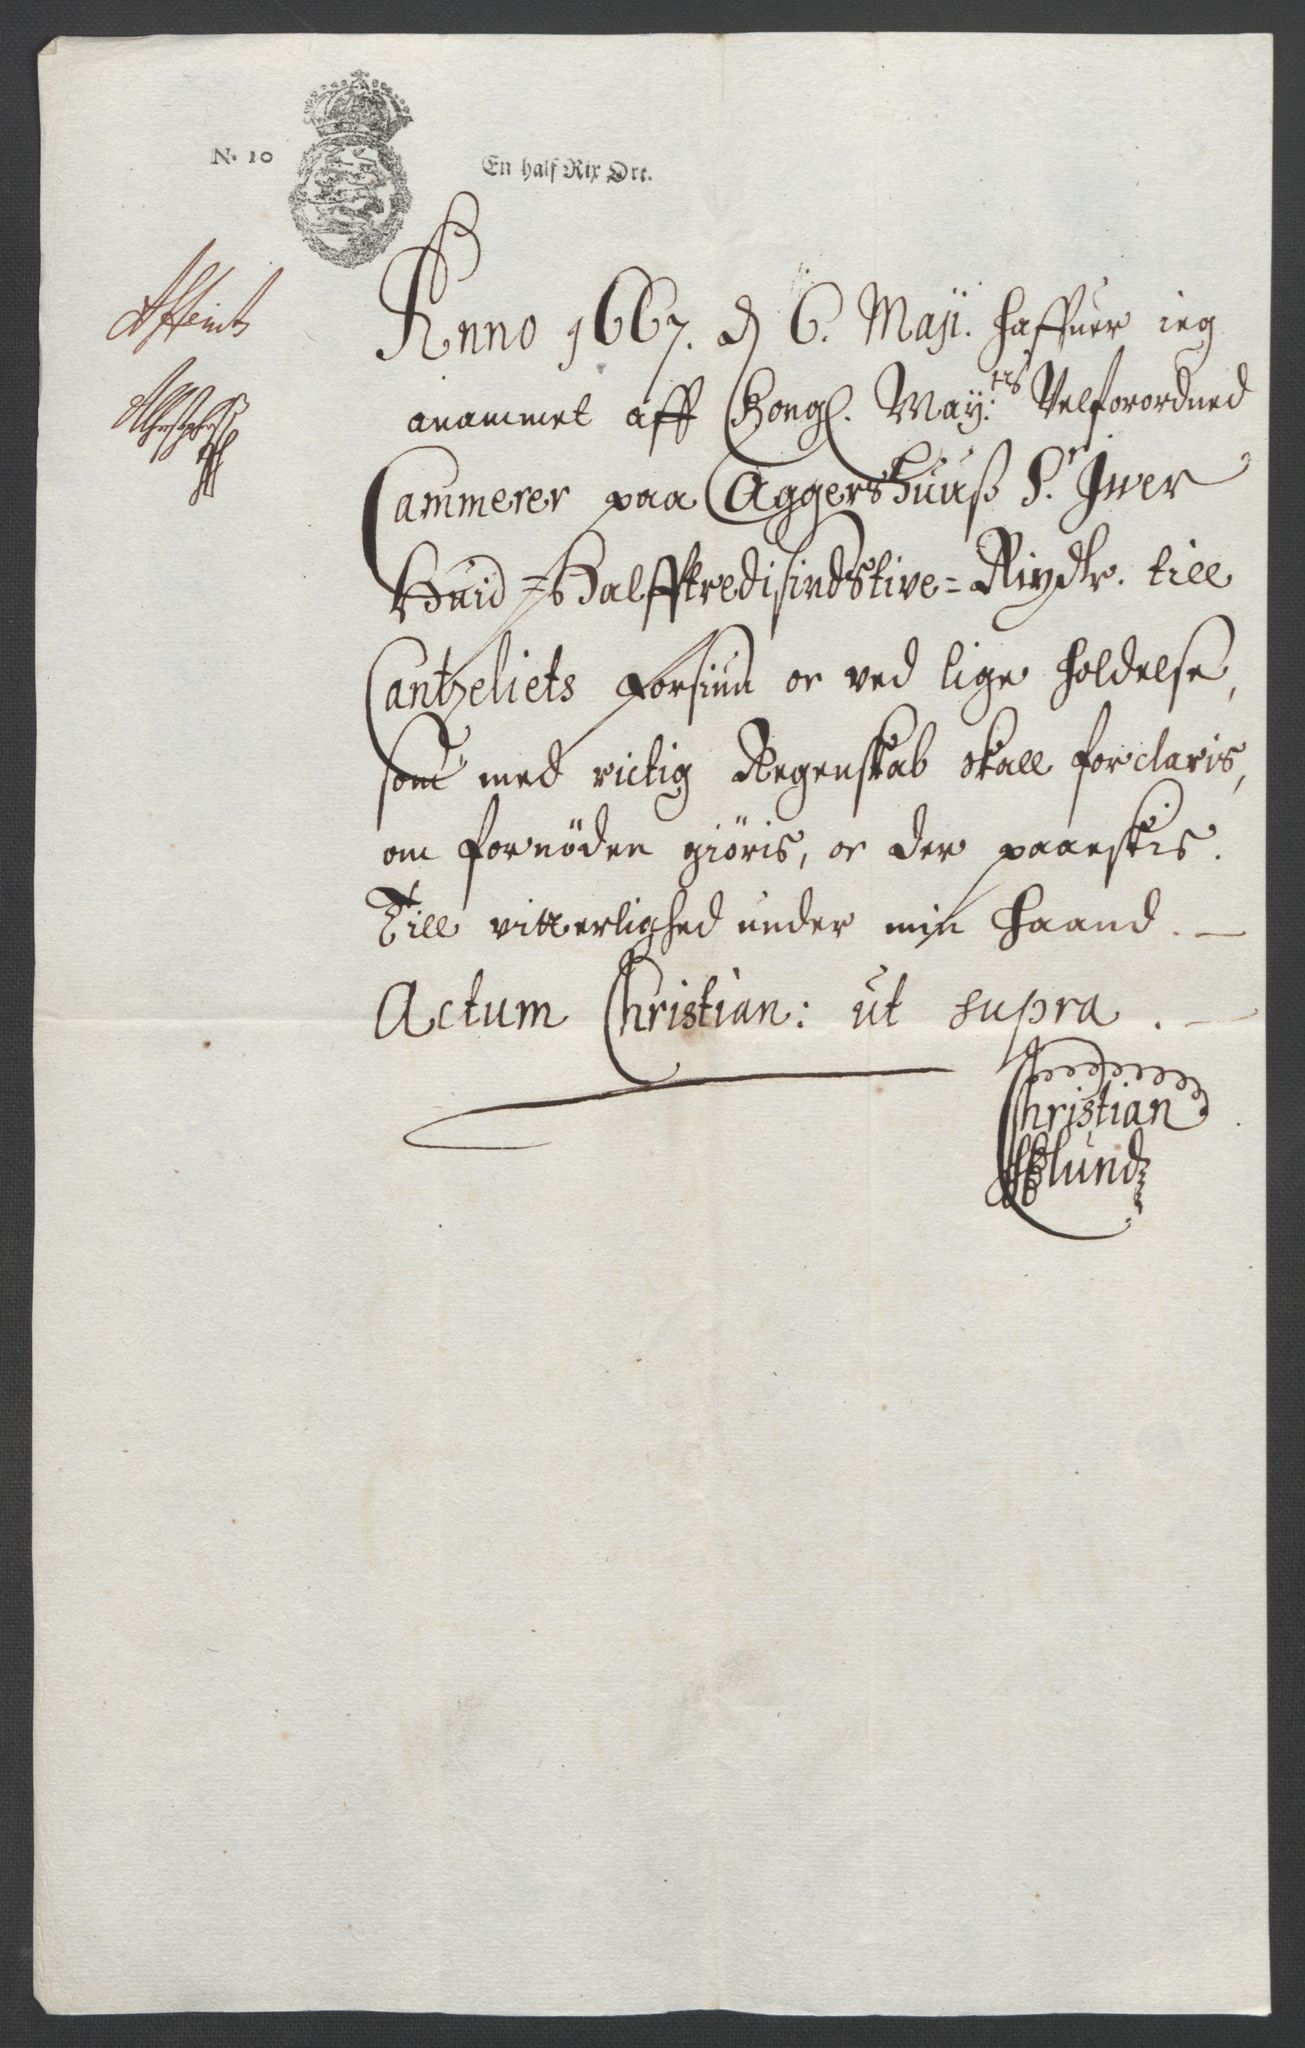 N. 10
En half Rix Ort.
Anno 1667. d 6. Maji. haffuer ieg
anammet aff Kongl. May:tts Velforordned
Cammerer paa Aggershuuß Sr. Jver
Huid = Halfftredisindstive = Rixdlr. till
Cantzeliets forsiun oc ved lige holdelse,
som med rictig Regenskab skall forclaris,
om fornöden giöris, oc der paaeskis.
Till vitterlighed under min haand. —
Actum Christian: ut supra. —
Christian
Lund